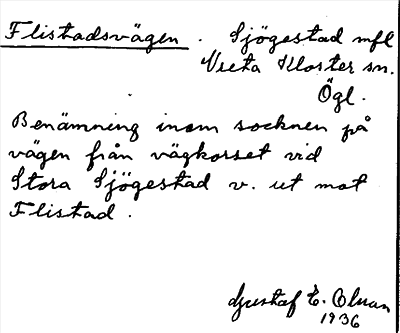 Flistadsvägen. Sjögestad mfl
Vreta Kloster sn.
Ögl.
Benämning inom socknen på
vägen från vägkorset vid
Stora Sjögestad v. ut mot
Flistad.
Gustaf E. Olsson
1936